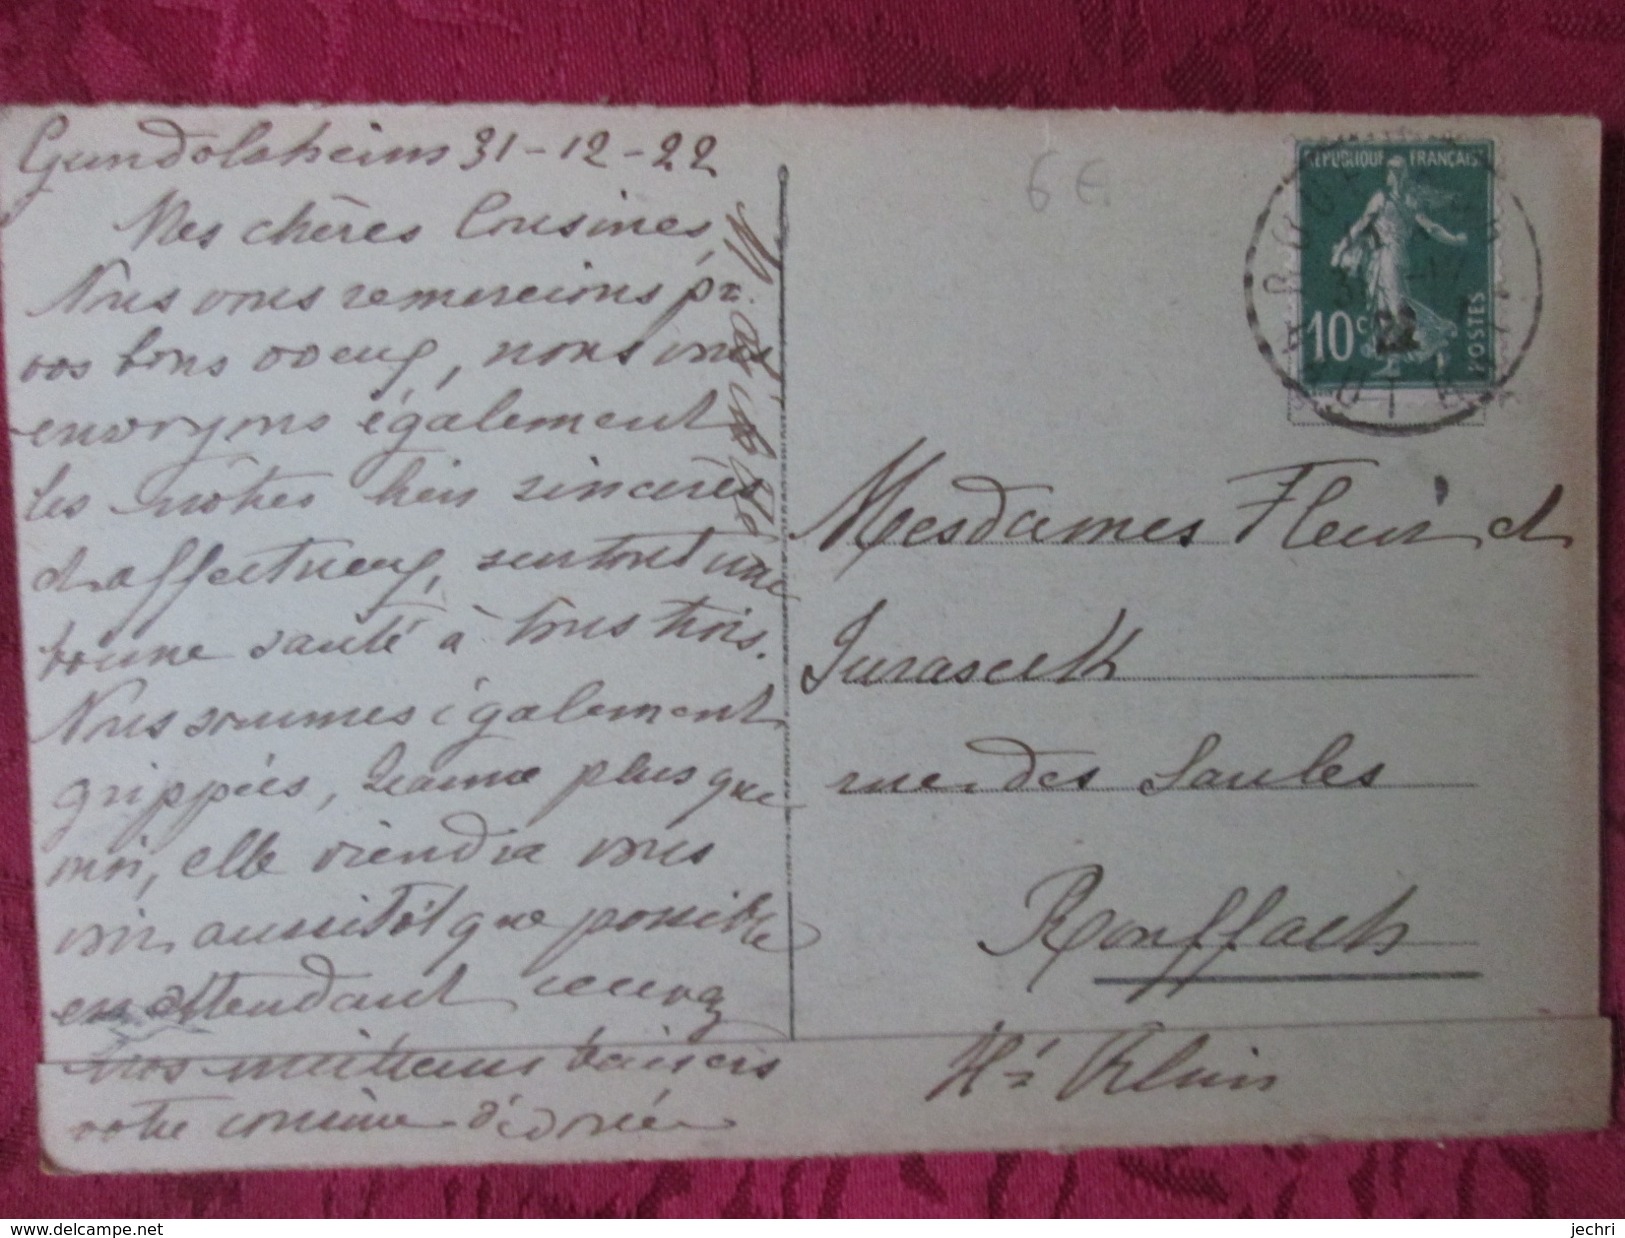 Gundolsheim 31-12-22
Mes chères Cousines,
Nous vous remercions pr.
vos bons voeux, nous vous
envoyons également
les nôtres bien sincères
et affectueux, surtout une
bonne santé à tous trois.
Nous sommes également
grippées, Jeanne plus que
moi, elle viendra vous
voir aussitôt que possible
en attendant recevez
nos meilleurs baisers
votre cousine dévouée
6 €
RÉPUBLIQUE FRANÇAISE
10c
POSTES
22
Mesdames Fleur et
Juraseck
rue des Saules
Rouffach
Ht Rhin
www.delcampe.net
jechri